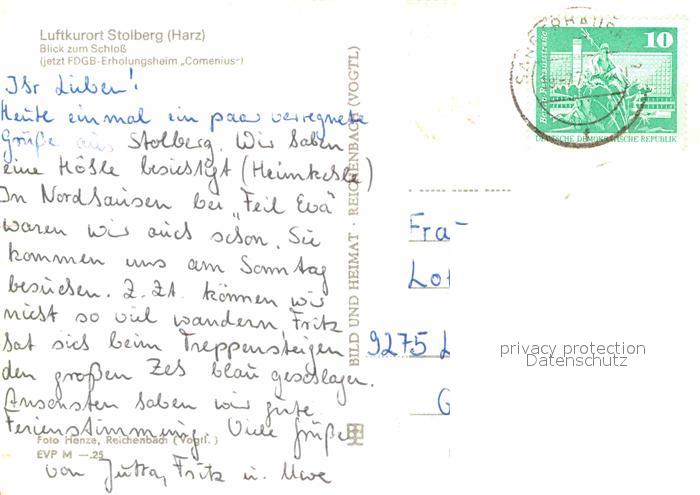 Luftkurort Stolberg (Harz)
Blick zum Schloß
(jetzt FDGB-Erholungsheim „Comenius“)
Ihr Lieben!
Heute einmal ein paar verregnete
Grüße aus Stolberg. Wir haben
eine Höhle besichtigt (Heimkehle)
In Nordhausen bei „Feil Eva“
waren wir auch schon. Sie
kommen uns am Sonntag
besuchen. Z. Zt. können wir
nicht so viel wandern, Fritz
hat sich beim Treppensteigen
den großen Zeh blau geschlagen.
Ansonsten haben wir gute
Ferienstimmung. Viele Grüße
von Jutta, Fritz u. Uwe
Foto Henze, Reichenbach (Vogtl.)
EVP M —.25
BILD UND HEIMAT · REICHENBACH (VOGTL)
10
DEUTSCHE DEMOKRATISCHE REPUBLIK
Fra-
Lot
9275 L
G
privacy protection
Datenschutz